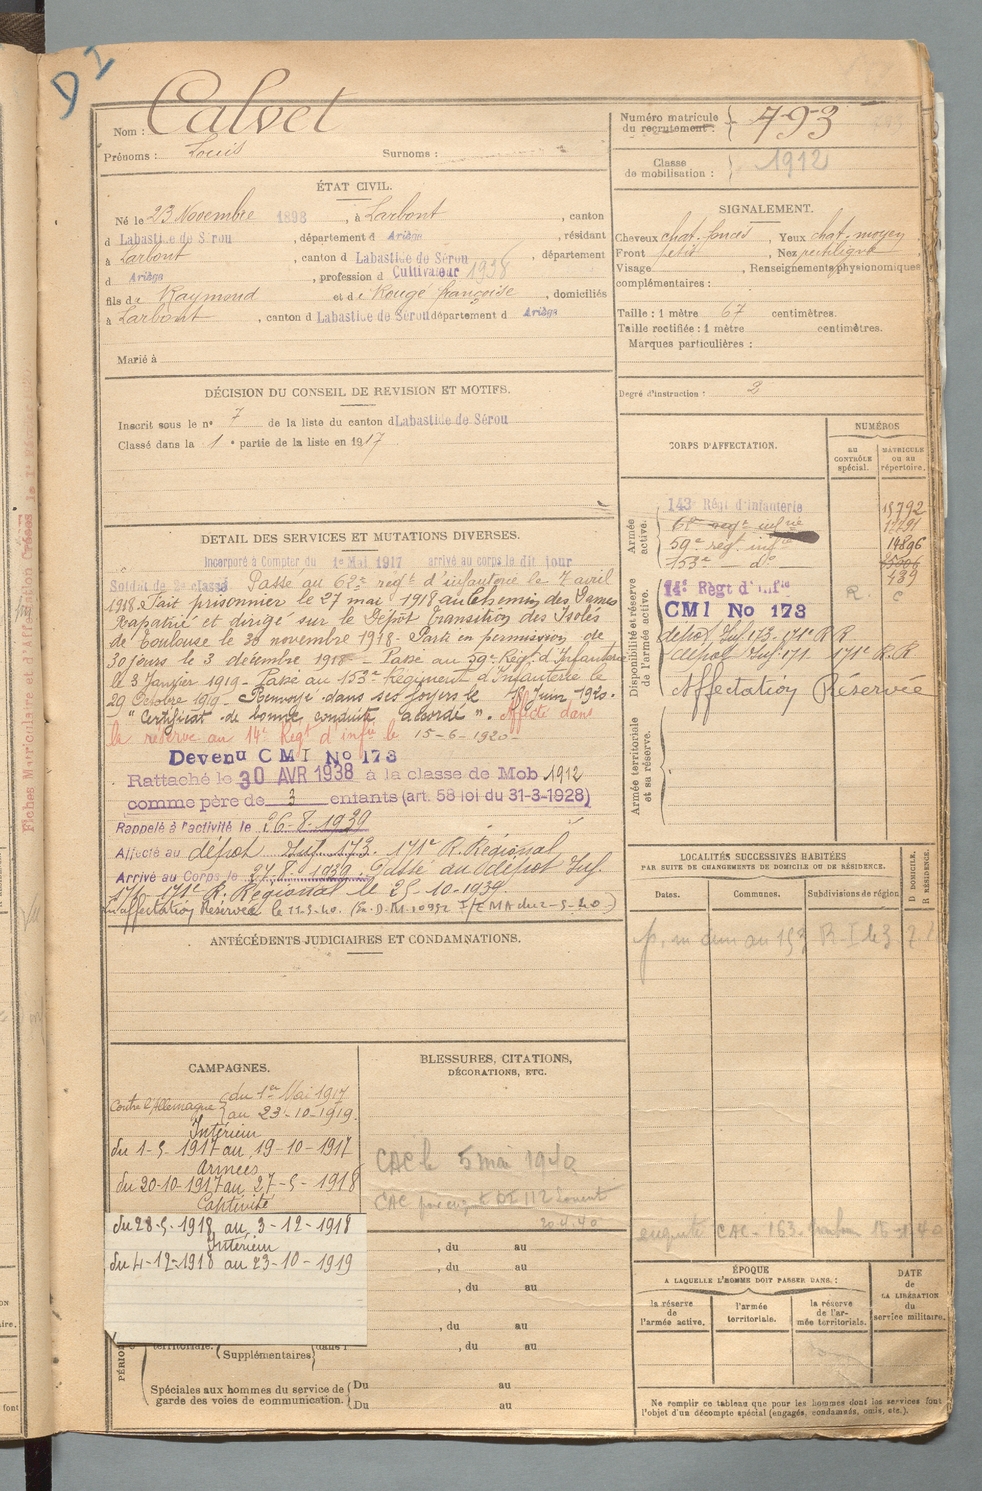 D I
Nom : Calvet
Prénoms : Louis Surnoms :
Numéro matricule du recrutement : 793
Classe de mobilisation : 1912
ÉTAT CIVIL.
Né le 23 Novembre 1898, à Larbont, canton
d Labastide de Sérou, département d Ariège, résidant
à Larbont, canton d Labastide de Sérou, département
d Ariège, profession d Cultivateur 1938
fils de Raymond et de Rouge françoise, domiciliés
à Larbont, canton d Labastide de Sérou département d Ariège
Marié à
SIGNALEMENT.
Cheveux chat. foncés, Yeux chat. moyen
Front petit, Nez rectiligne
Visage , Renseignements physionomiques
complémentaires :
Taille : 1 mètre 67 centimètres.
Taille rectifiée : 1 mètre centimètres.
Marques particulières :
Degré d'instruction : 2
DÉCISION DU CONSEIL DE REVISION ET MOTIFS.
Inscrit sous le n° 7 de la liste du canton d Labastide de Sérou
Classé dans la 1e partie de la liste en 1917
CORPS D'AFFECTATION.
NUMÉROS
au CONTRÔLE spécial.
MATRICULE ou au répertoire.
Armée active.
143e Régt d'infanterie 15792
59e rég. inf 14896
153e do
439
Disponibilité et réserve de l'armée active.
14e Régt d'Infie R. C
CMI No 173
dépôt Inf 173. 171e R R
dépôt Inf. 171 171e R.R
Affectation Réservée
Armée territoriale et sa réserve.
DETAIL DES SERVICES ET MUTATIONS DIVERSES.
Incorporé à Compter du 1er Mai 1917 arrivé au corps le dit jour
Soldat de 2e classe. Passé au régt d'infanterie le 7 avril
1918. Fait prisonnier le 27 mai 1918 au Chemin des Dames
Rapatrié et dirigé sur le Dépôt transition des Isolés
de Toulouse le 30 novembre 1918 - Parti en permission de
30 jours le 3 décembre 1918 - Passé au 59e Régt d'Infanterie
le 3 Janvier 1919 - Passé au 153e Régiment d'Infanterie le
29 Octobre 1919 - Renvoyé dans ses foyers le Juin 1920.
"Certificat de bonne conduite accordé". Affecté dans
la réserve au 14e Régt d'infie le 15-6-1920-
Devenu CMI No 173
Rattaché le 30 AVR 1938 à la classe de Mob 1912
comme père de 3 enfants (art. 58 loi du 31-3-1928)
Rappelé à l'activité le 26-8-1939
Affecté au dépôt Inf 173. 171e R. Régional
Arrivé au Corps le 27.8.1939. Passé au dépôt Inf.
171e R. Régional le 25-10-1939.
En affectation Réservée le 11-5-40.
ANTÉCÉDENTS JUDICIAIRES ET CONDAMNATIONS.
LOCALITÉS SUCCESSIVES HABITÉES
PAR SUITE DE CHANGEMENTS DE DOMICILE OU DE RÉSIDENCE.
Dates. Communes. Subdivisions de région.
D DOMICILE. R RÉSIDENCE.
CAMPAGNES.
Contre l'Allemagne du 1er Mai 1917
au 23-10-1919.
Intérieur
du 1-5-1917 au 19-10-1917
Armées
du 20-10-1917 au 27-5-1918
Captivité
du 28-5-1918 au 3-12-1918
Intérieur
du 4-12-1918 au 23-10-1919
BLESSURES, CITATIONS,
DÉCORATIONS, ETC.
CAC le 5 mai 1940
CAC
, du au
, du au
, du au
, du au
territoriale. Supplémentaires , du au
Spéciales aux hommes du service de garde des voies de communication.
Du au
Du au
CAC - 163
ÉPOQUE
A LAQUELLE L'HOMME DOIT PASSER DANS :
la réserve de l'armée active.
l'armée territoriale.
la réserve de l'armée territoriale.
DATE DE LA LIBÉRATION du service militaire.
Ne remplir ce tableau que pour les hommes dont les services font
l'objet d'un décompte spécial (engagés, condamnés, omis, etc.).